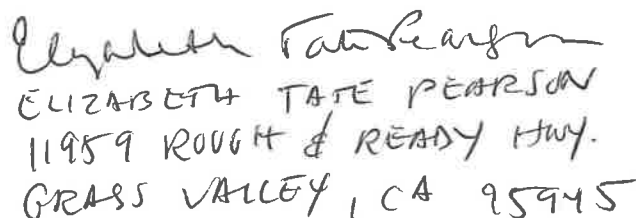 Elizabeth Tate Pearson
ELIZABETH TATE PEARSON
11959 ROUGH & READY HWY.
GRASS VALLEY, CA 95945